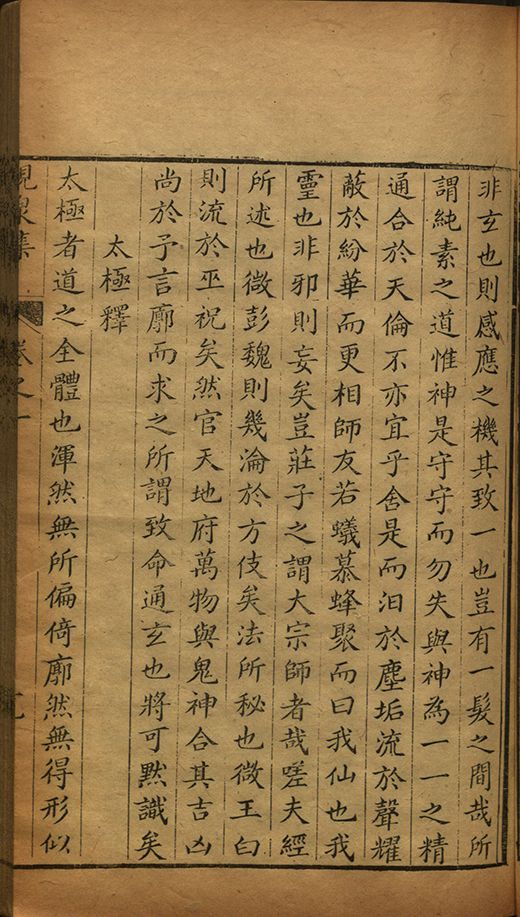 非玄也則感應之機其致一也豈有一髮之間哉所
謂純素之道惟神是守守而勿失與神為一一之精
通合於天倫不亦宜乎舍是而汩於塵垢流於聲耀
蔽於紛華而更相師友若蟻慕蜂聚而曰我仙也我
靈也非邪則妄矣豈莊子之謂大宗師者哉嗟夫經
所述也微彭魏則幾淪於方伎矣法所秘也微王白
則流於巫祝矣然官天地府萬物與鬼神合其吉凶
尚於予言廓而求之所謂致命通玄也將可默識矣
太極釋
太極者道之全體也渾然無所偏倚廓然無得形似
峴泉集
卷之一